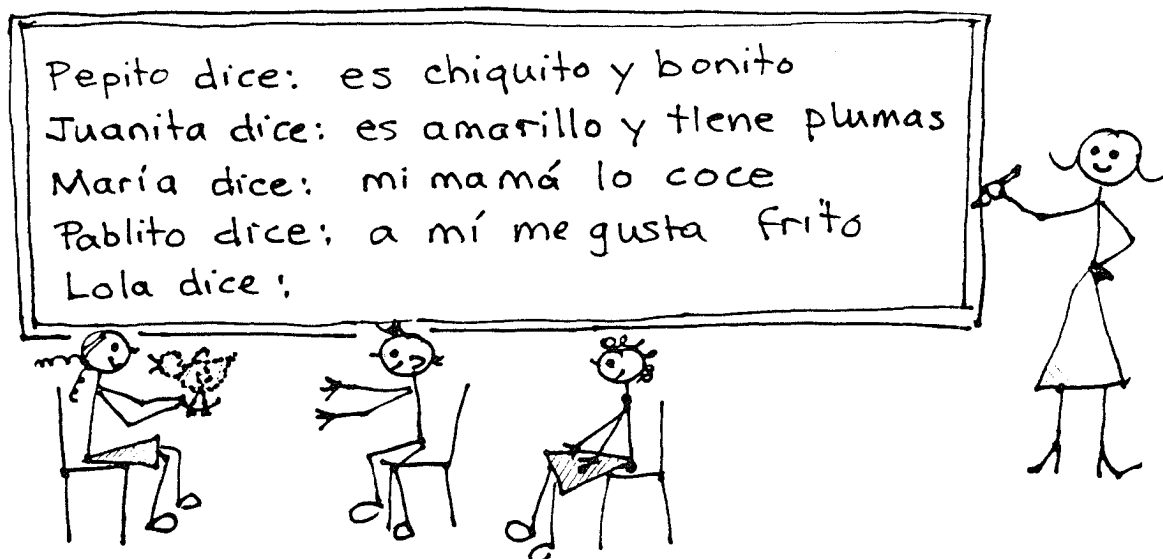 Pepito dice: es chiquito y bonito
Juanita dice: es amarillo y tiene plumas
María dice: mi mamá lo coce
Pablito dice: a mí me gusta frito
Lola dice: